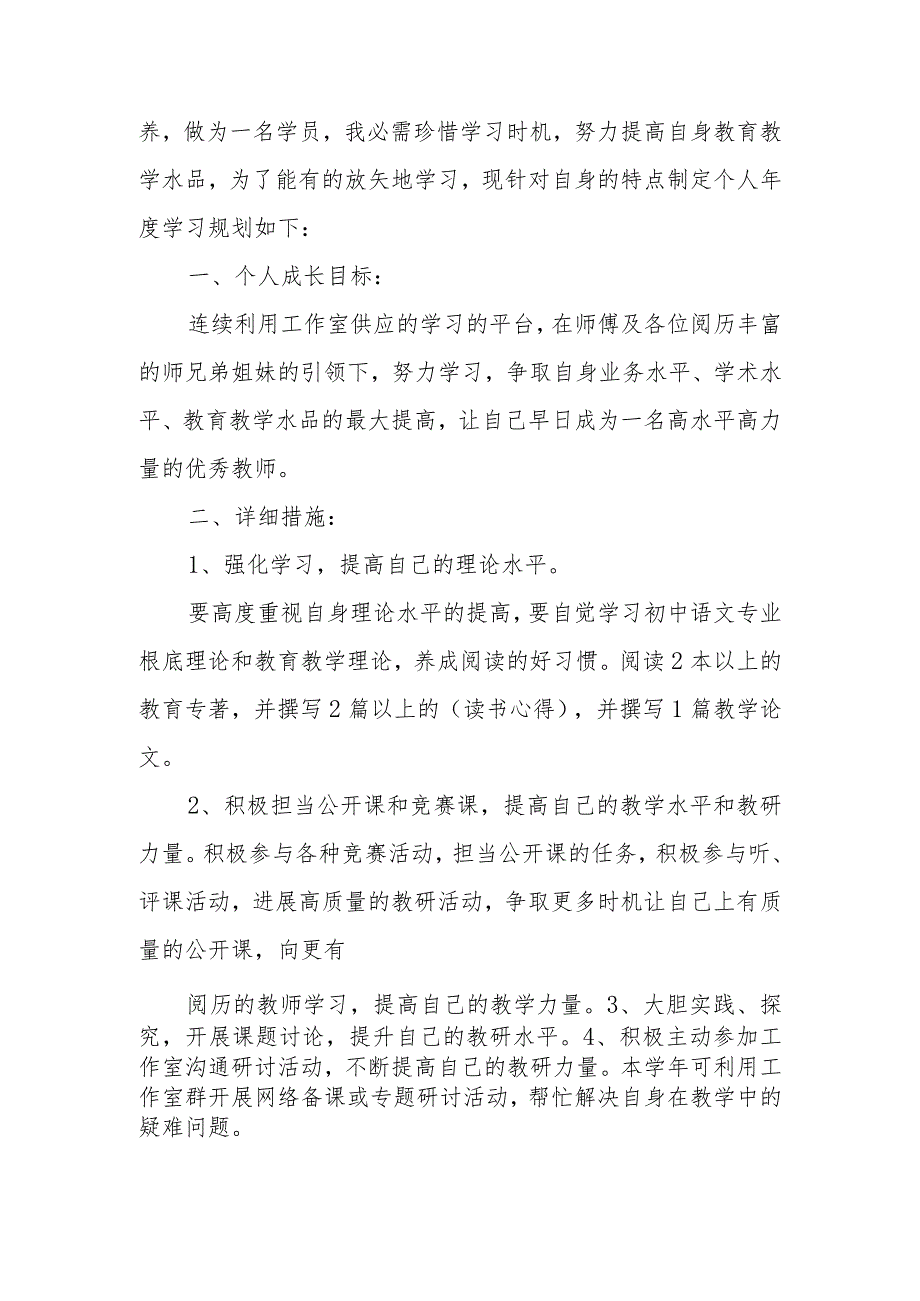 养，做为一名学员，我必需珍惜学习时机，努力提高自身教育教
学水品，为了能有的放矢地学习，现针对自身的特点制定个人年
度学习规划如下：
一、个人成长目标：
连续利用工作室供应的学习的平台，在师傅及各位阅历丰富
的师兄弟姐妹的引领下，努力学习，争取自身业务水平、学术水
平、教育教学水品的最大提高，让自己早日成为一名高水平高力
量的优秀教师。
二、详细措施：
1、强化学习，提高自己的理论水平。
要高度重视自身理论水平的提高，要自觉学习初中语文专业
根底理论和教育教学理论，养成阅读的好习惯。阅读2本以上的
教育专著，并撰写2篇以上的（读书心得），并撰写1篇教学论
文。
2、积极担当公开课和竞赛课，提高自己的教学水平和教研
力量。积极参与各种竞赛活动，担当公开课的任务，积极参与听、
评课活动，进展高质量的教研活动，争取更多时机让自己上有质
量的公开课，向更有
阅历的教师学习，提高自己的教学力量。3、大胆实践、探
究，开展课题讨论，提升自己的教研水平。4、积极主动参加工
作室沟通研讨活动，不断提高自己的教研力量。本学年可利用工
作室群开展网络备课或专题研讨活动，帮忙解决自身在教学中的
疑难问题。